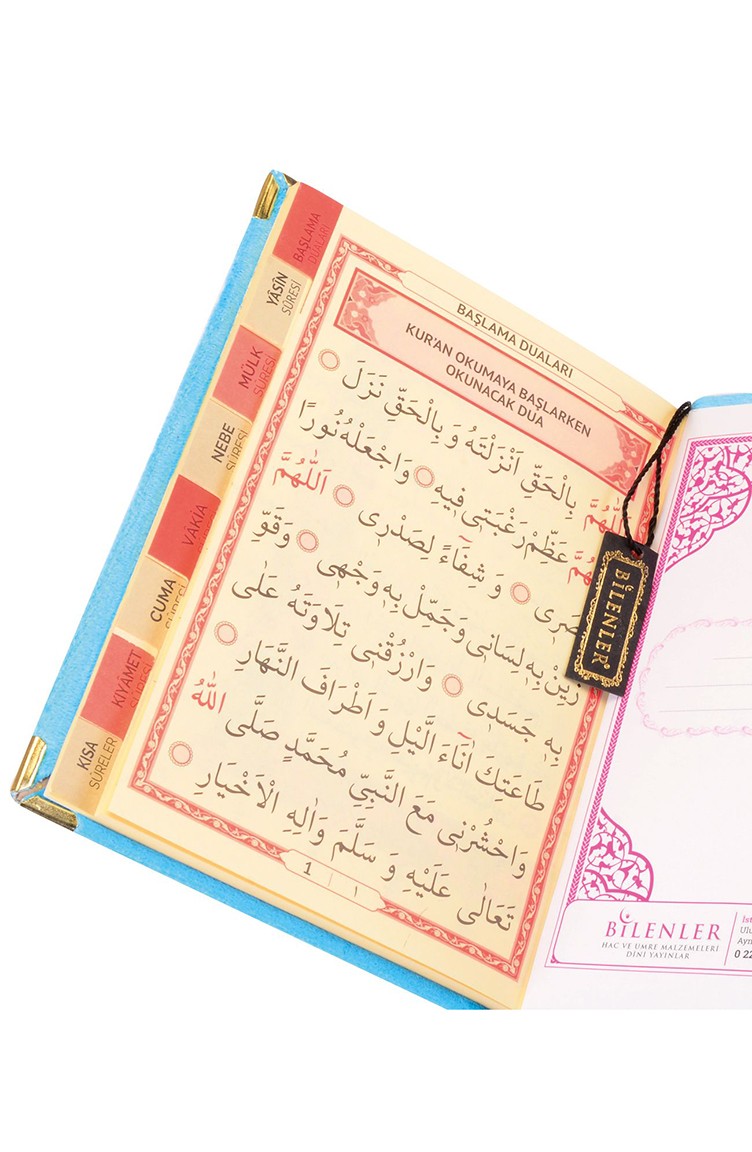 BAŞLAMA
DUALARI
YÂSÎN
SÛRESİ
MÜLK
SÛRESİ
NEBE
SÛRESİ
VÂKIA
CUMA
SÛRESİ
KIYÂMET
SÛRESİ
KISA
SÛRELER
BAŞLAMA DUALARI
KUR'AN OKUMAYA BAŞLARKEN
OKUNACAK DUA
بِالْحَقِّ اَنْزَلْتَهُ وَ بِالْحَقِّ نَزَلَ
عَظِّمْ رَغْبَتٖى فٖيهِ وَاجْعَلْهُ نُورًا
وَ شِفَٓاءً لِصَدْرٖى اَللّٰهُمَّ
زَيِّنْ بِهٖ لِسَانٖى وَ جَمِّلْ بِهٖ وَجْهٖى وَقَوِّ
بِهٖ جَسَدٖى وَارْزُقْنٖى تِلَاوَتَهُ عَلٰى
طَاعَتِكَ اٰنَٓاءَ الَّيْلِ وَ اَطْرَافَ النَّهَارِ
وَاحْشُرْنٖى مَعَ النَّبِيِّ مُحَمَّدٍ صَلَّى اللّٰهُ
تَعَالٰى عَلَيْهِ وَ سَلَّمَ وَاٰلِهِ الْاَخْيَارِ
1 ١
BİLENLER
BİLENLER
HAC VE UMRE MALZEMELERİ
DİNİ YAYINLAR
0 22